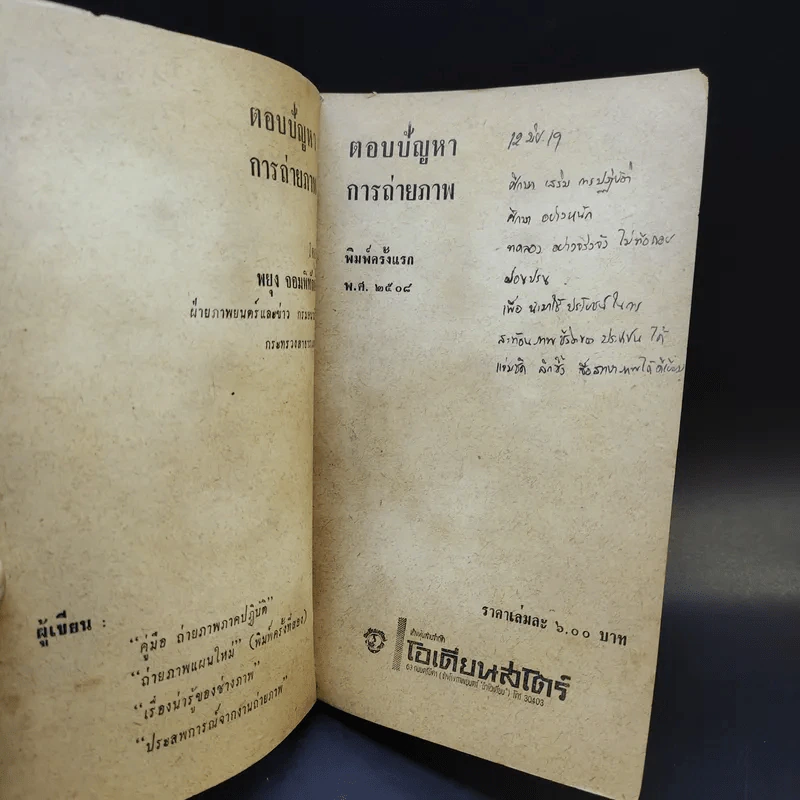 ตอบปัญหา
การถ่ายภาพ
โดย
พยุง จอมพิทั
ฝ่ายภาพยนตร์และข่าว
ผู้เขียน :
"คู่มือ ถ่ายภาพภาคปฏิบัติ"
"ถ่ายภาพแผนใหม่" (พิมพ์ครั้งที่สอง)
"เรื่องน่ารู้ของช่างภาพ"
"ประสพการณ์จากงานถ่ายภาพ"
ตอบปัญหา
การถ่ายภาพ
พิมพ์ครั้งแรก
พ.ศ. ๒๕๐๘
ศึกษา เสริม การปฏิบัติ
ศึกษา อย่างหนัก
ทดลอง อย่างจริงจัง ไม่ท้อถอย
เพื่อ นำมาใช้ ประโยชน์ ในการ
สะท้อน ภาพ ชีวิตของ ประชาชน ได้
ราคาเล่มละ ๖.๐๐ บาท
โอเดียนสโตร์